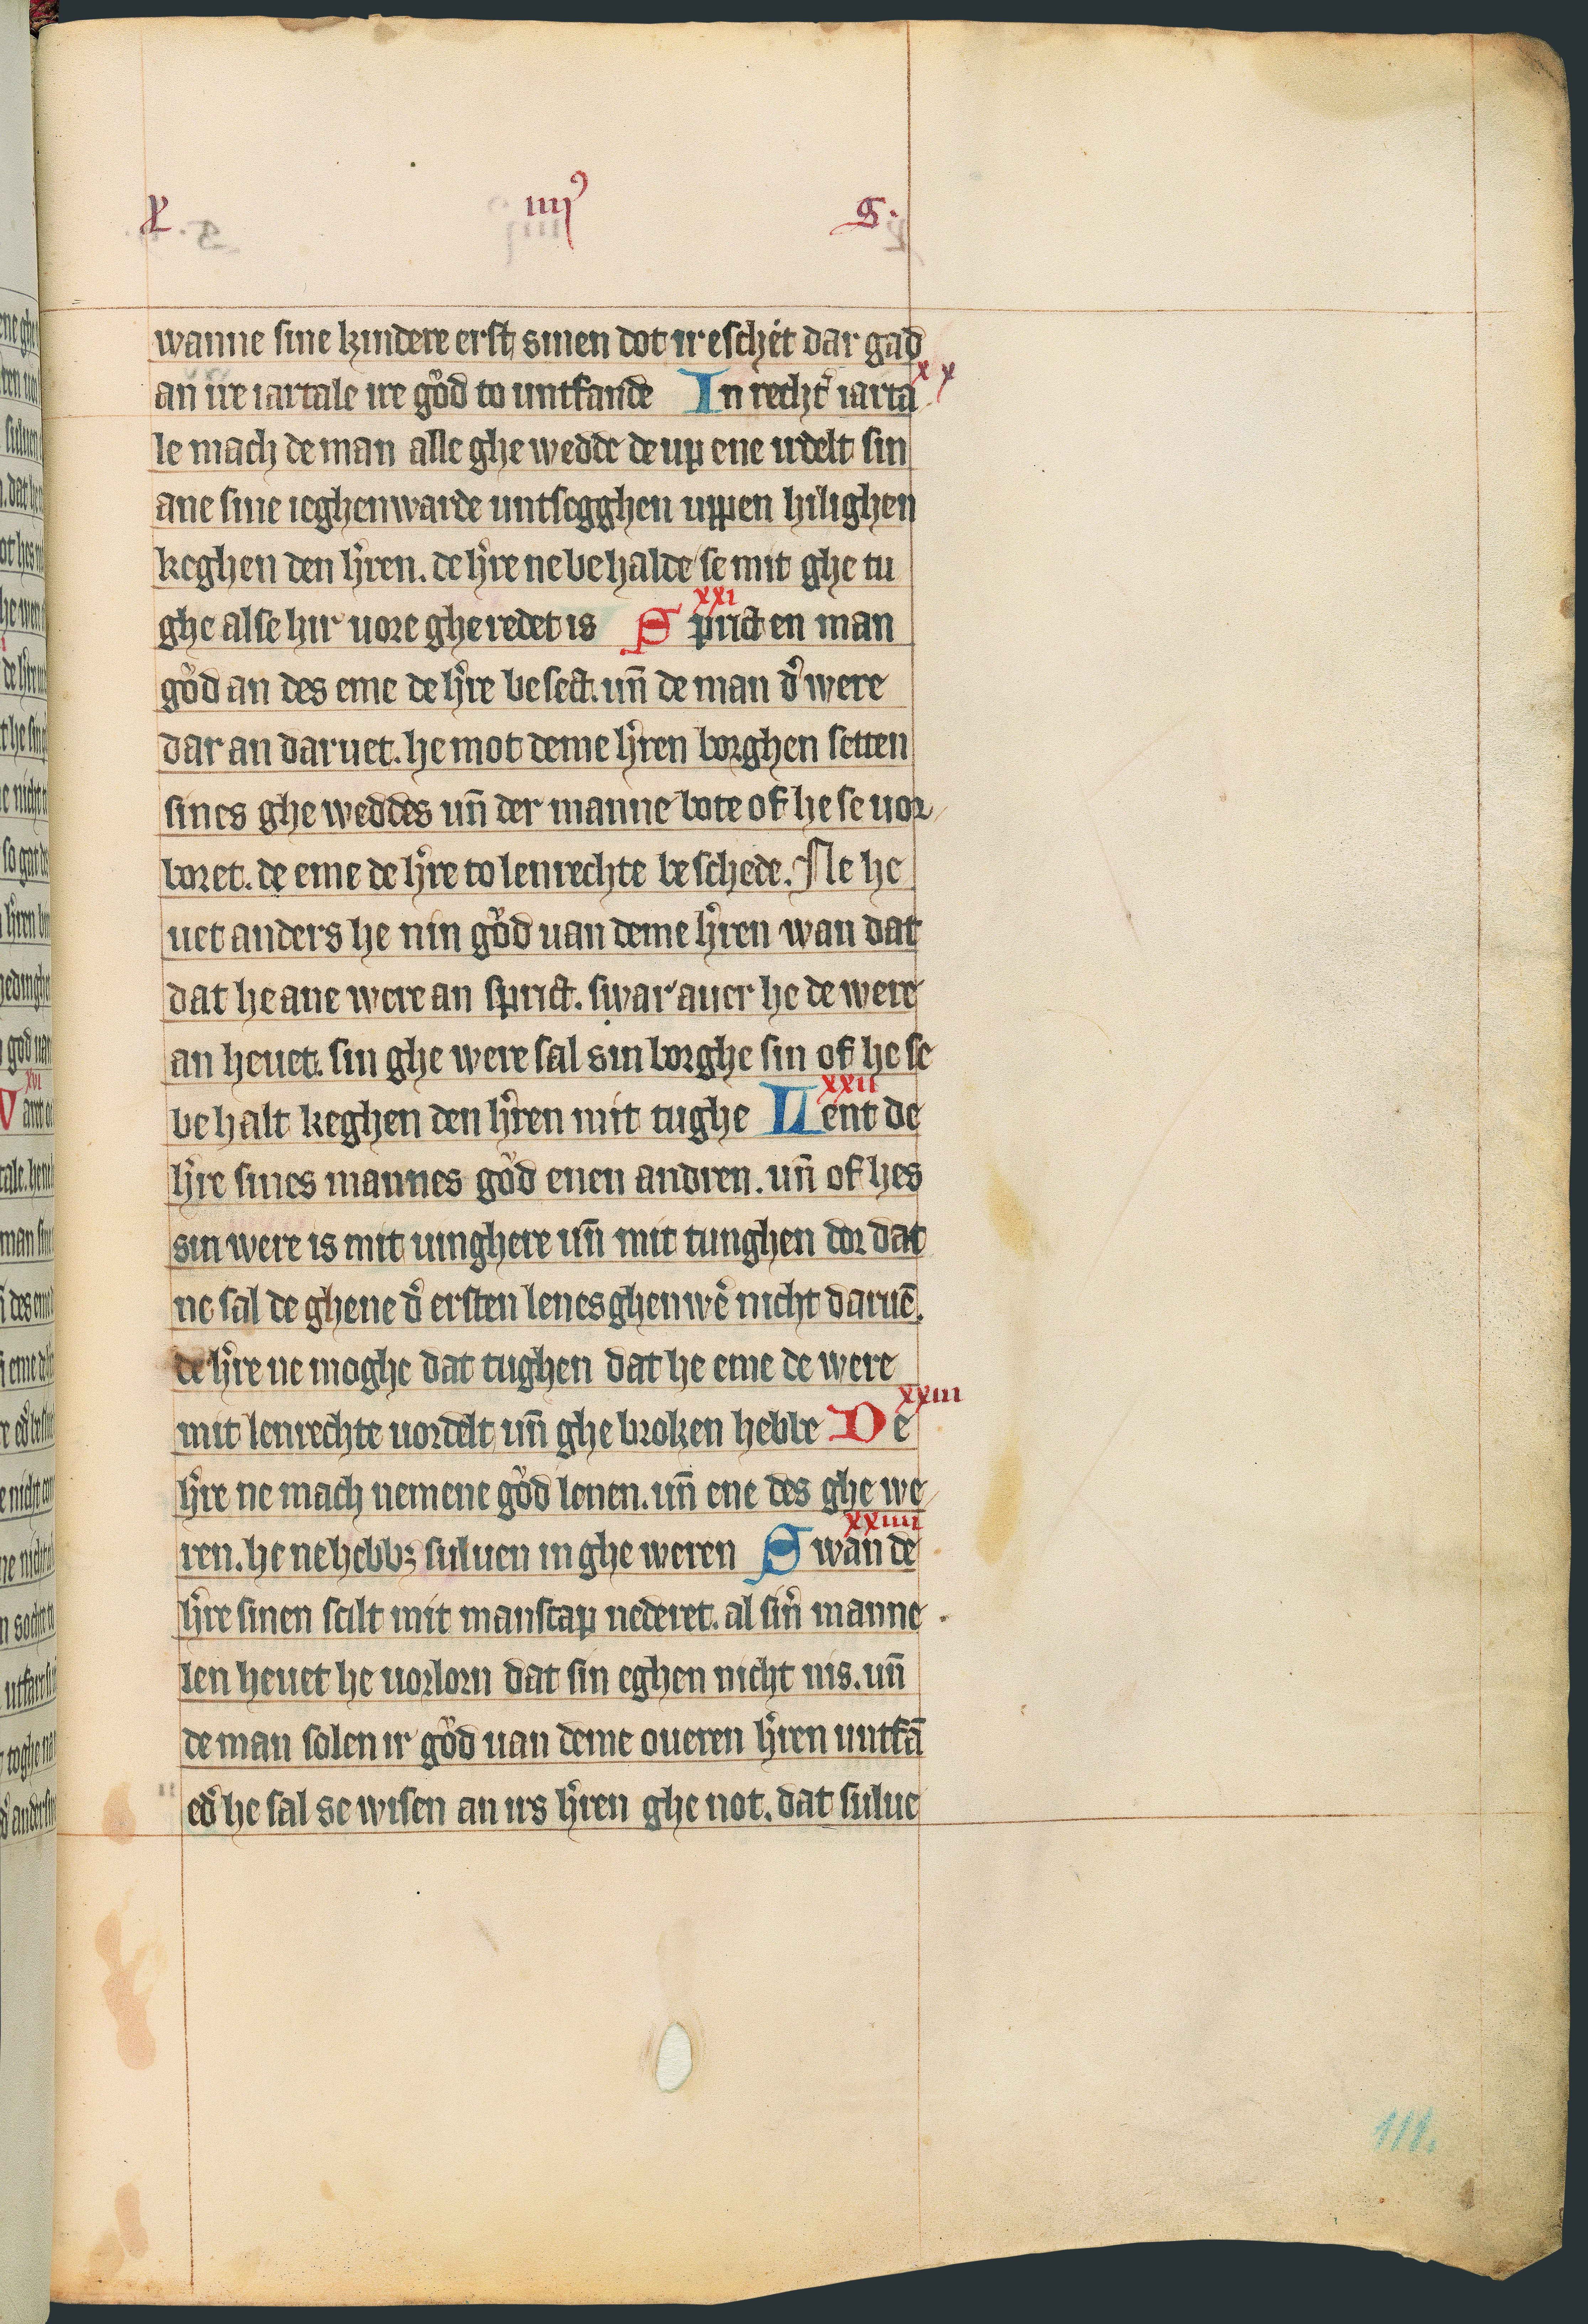 L. iiij⁹ S.
wanne sine kindere erst sinen dot ir eschet dar gad
an ire iartale ire gůd to untfande In recht̓ iarta xx
le mach de man alle ghe wedde de up ene irdelt sin
ane sine ieghenwarde untsegghen uppen hilighen
keghen den h̓ren. de h̓re ne be halde se mit ghe tu
ghe alse hir uore ghe redet is xxi Sprict en man
gůd an des eme de h̓re be sect. un̄ de man d̓ were
dar an daruet. he mot deme h̓ren borghen setten
sines ghe weddes un̄ der manne bote of he se uor
boret. de eme de h̓re to lenrechte be schede. Ne he
uet anders he nin gůd uan deme h̓ren wan dat
dat he ane were an sprict. swar auer he de were
an heuet. sin ghe were sal sin borghe sin of he se
be halt keghen den h̓ren mit tughe xxii Lent de
h̓re sines mannes gůd enen andren. un̄ of hes
sin were is mit uinghere un̄ mit tunghen dor dat
ne sal de ghene d̓ ersten lenes ghenwe̓ nicht daruē.
de h̓re ne moghe dat tughen dat he eme de were
mit lenrechte uordelt un̄ ghe broken hebbe xxiii De
h̓re ne mach nemene gůd lenen. un̄ ene des ghe we
ren. he ne hebbꝫ suluen in ghe weren xxiiii Swan de
h̓re sinen scilt mit manscap nederet. al sin̓ manne
len heuet he uorlorn dat sin eghen nicht nis. un̄
de man solen ir gůd uan deme oueren h̓ren untfā
ed̓ he sal se wisen an irs h̓ren ghe not. dat sulue
111.